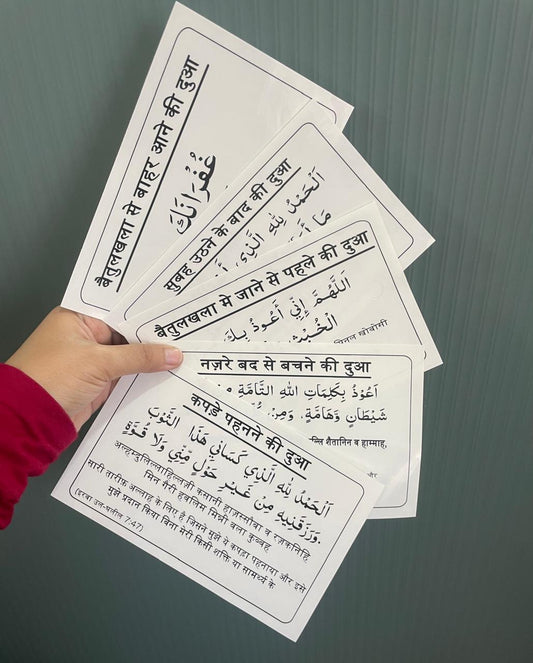 बैतुलखला से बाहर आने की दुआ
غُفْرَانَكَ
सुबह उठने के बाद की दुआ
اَلْحَمْدُ لِلّٰهِ الَّذِي
बैतुलखला मे जाने से पहले की दुआ
اَللّٰهُمَّ إِنِّي أَعُوذُ بِكَ
मिनल खोबोमी
नज़रे बद से बचने की दुआ
اَعُوْذُ بِكَلِمَاتِ اللّٰهِ التَّامَّةِ
شَيْطَانٍ وَهَامَّةٍ. وَمِنْ
ल्लि शैतानिन व हाम्माह,
और
कपड़े पहनने की दुआ
اَلْحَمْدُ لِلّٰهِ الَّذِي كَسَانِي هَذَا الثَّوْبَ
وَرَزَقَنِيهِ مِنْ غَيْرِ حَوْلٍ مِّنِّي وَلَا قُوَّةٍ.
अल्हम्दुलिल्लाहिल्लज़ी कसानी हाज़स्सौबा व रज़कनिहि
मिन गैरी हवलिम मिन्नी वला कुव्वह
सारी तारीफ़ अल्लाह के लिए है जिसने मुझे ये कपड़ा पहनाया और इसे
मुझे प्रदान किया बिना मेरी किसी शक्ति या सामर्थ्य के
(इरवा उल-घालील 7:47)